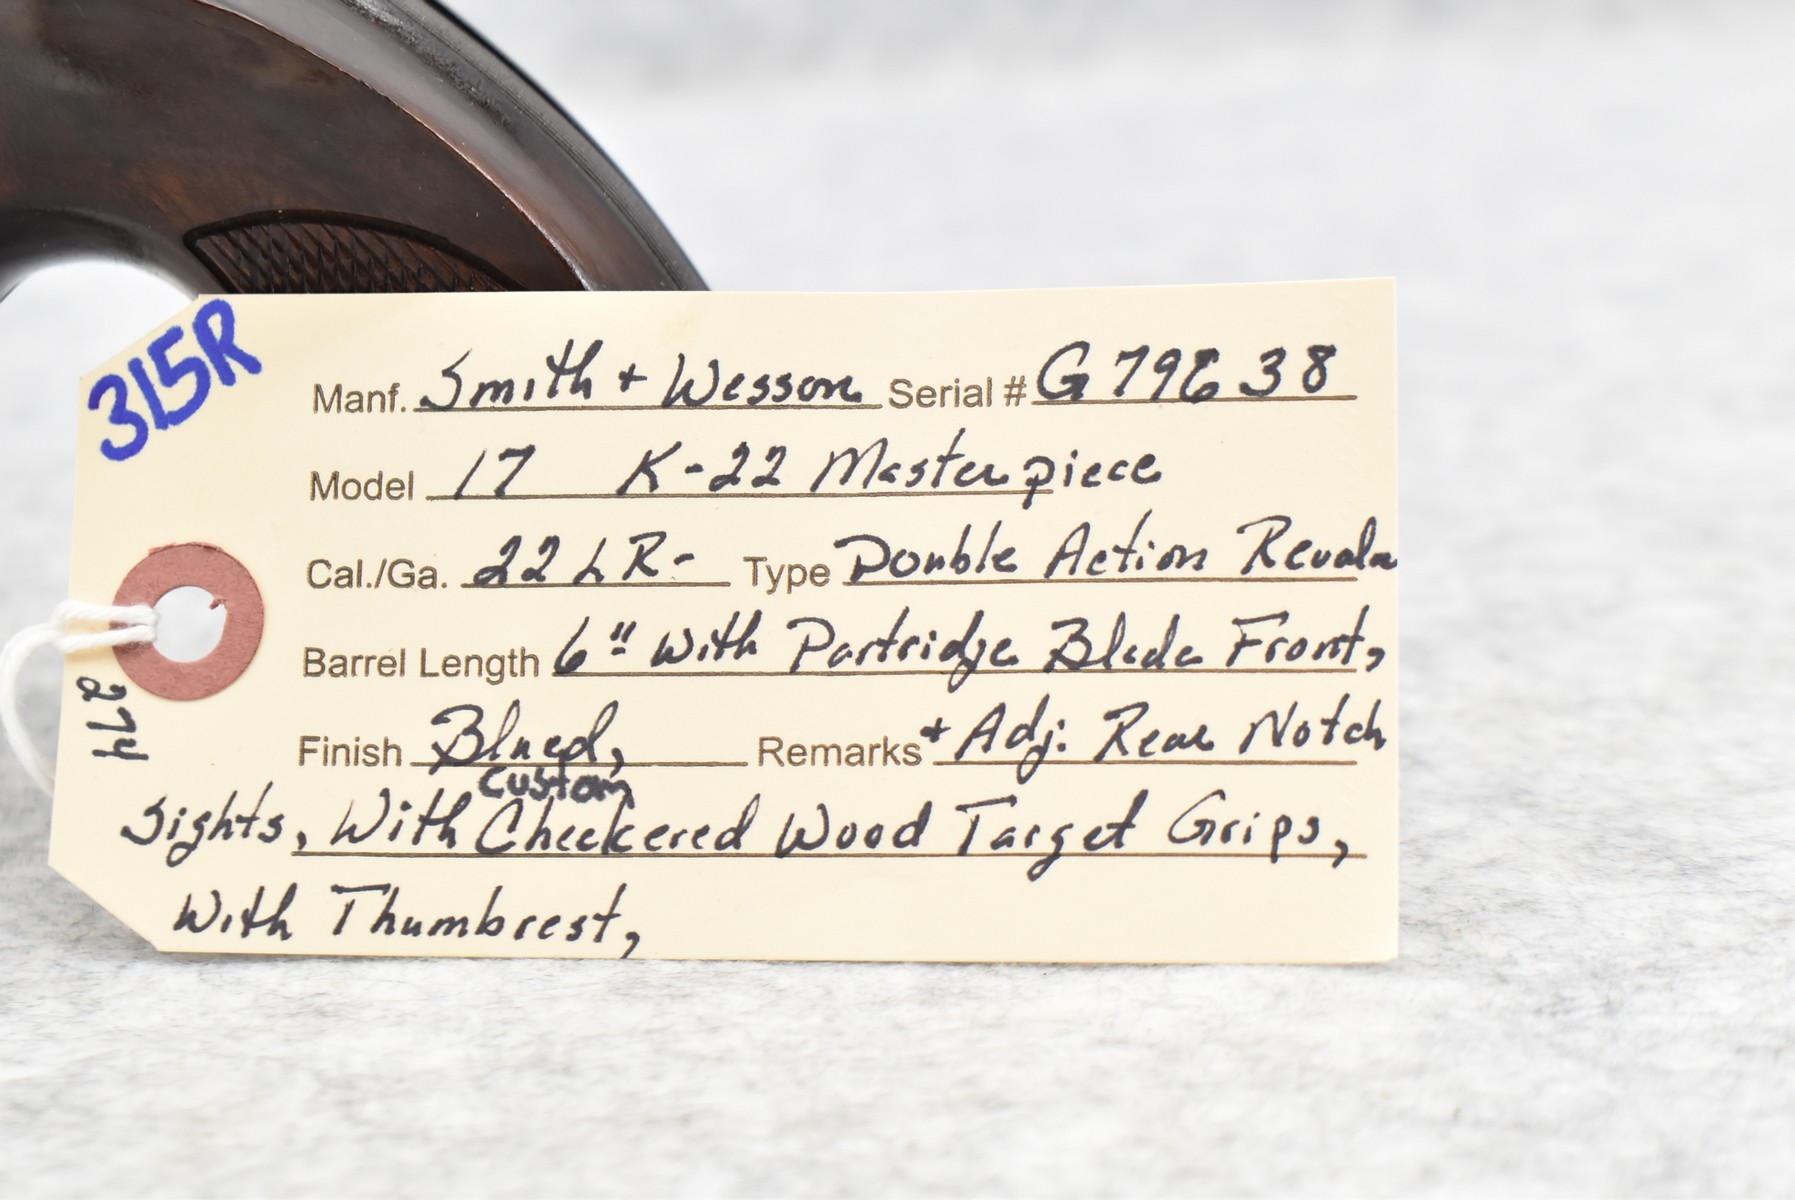 315R
Manf. Smith + Wesson Serial # G 79638
Model 17 K-22 Masterpiece
Cal./Ga. 22 LR- Type Double Action
Barrel Length 6" with Partridge Blade Front,
Finish Blued, Remarks + Adj. Rear Notch
Custom
Sights, With Checkered Wood Target Grips,
With Thumbrest,
274